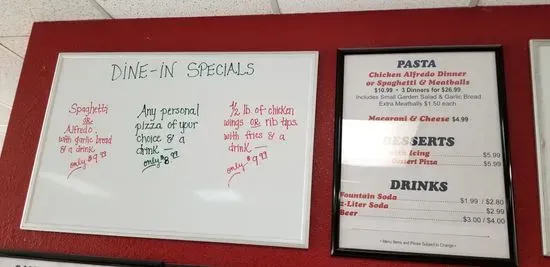 DINE-IN SPECIALS
Spaghetti
OR
Alfredo.
with garlic bread
& a drink
only $9.99
Any personal
pizza of your
choice & a
drink —
only $8.99
1/2 lb. of chicken
wings OR rib tips
with fries & a
drink —
only $9.99
PASTA
Chicken Alfredo Dinner
or Spaghetti & Meatballs
$10.99 • 3 Dinners for $26.99
Includes Small Garden Salad & Garlic Bread
Extra Meatballs $1.50 each
Macaroni & Cheese $4.99
DESSERTS
with Icing $5.99
Dessert Pizza $5.99
DRINKS
Fountain Soda $1.99 / $2.80
2-Liter Soda $2.99
Beer $3.00 / $4.00
• Menu Items and Prices Subject to Change •